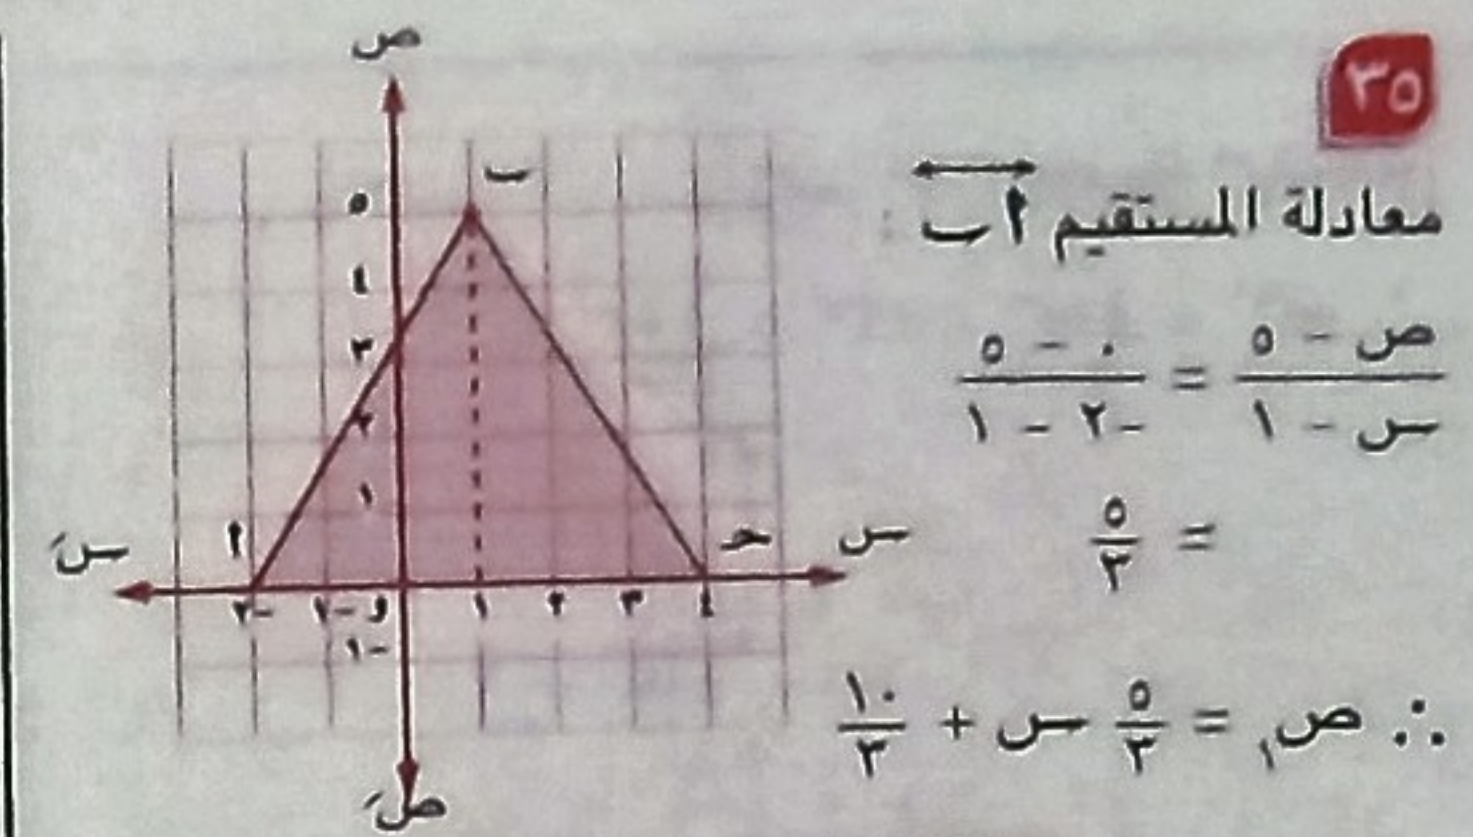 ٣٥
معادلة المستقيم أب :
(ص - ٥)/(س - ١) = (٠ - ٥)/(-٢ - ١)
= ٥/٣
∴ ص١ = ٥/٣ س + ١٠/٣
ص
ب
٥
٤
٣
٢
١
سَ أ حـ س
-٢ -١ و ١ ٢ ٣ ٤
-١
صَ